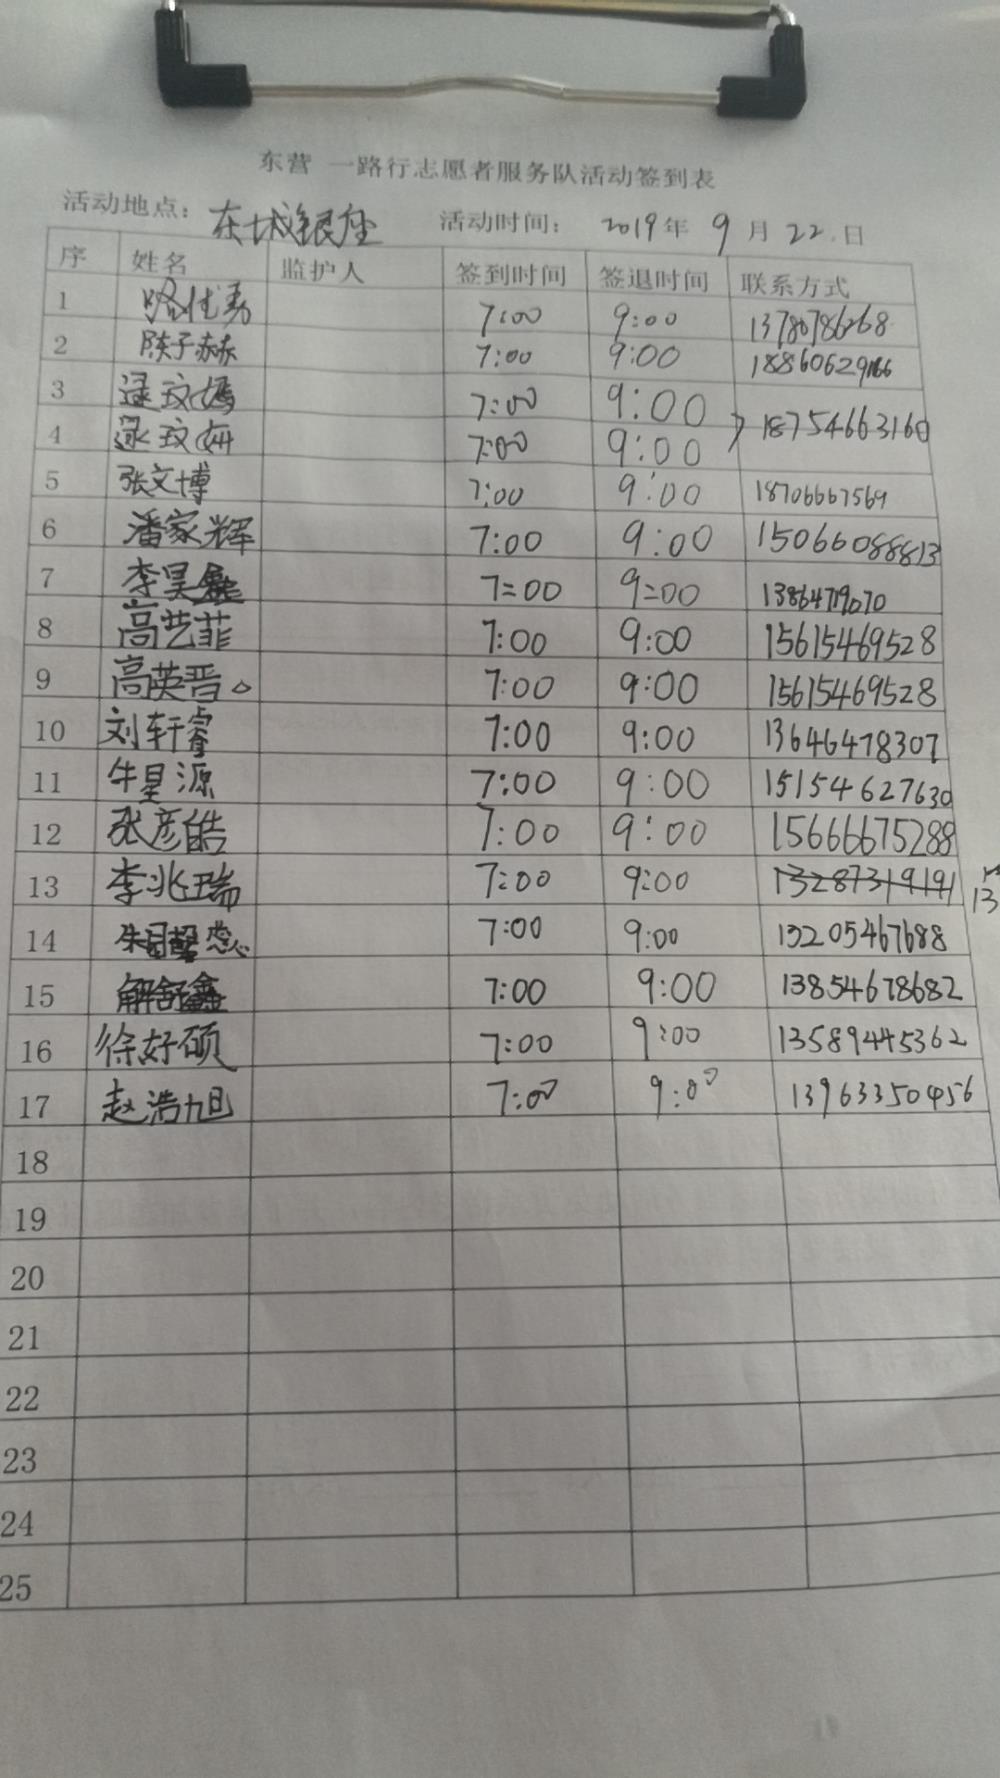 东营 一路行志愿者服务队活动签到表
活动地点： 东城银座 活动时间： 2019年 9月 22.日
序 姓名 监护人 签到时间 签退时间 联系方式
1 路仕勇 7:00 9:00 13780786268
2 陈子赫 7:00 9:00
3 逯玟嫣 7:00 9:00 18754663160
4 逯玟妍 7:00 9:00
5 张文博 7:00 9:00 18706667569
6 潘家辉 7:00 9:00 15066088813
7 李昊 7:00 9:00 13864719070
8 高艺菲 7:00 9:00 15615469528
9 高英晋。 7:00 9:00 15615469528
10 刘轩睿 7:00 9:00 13646478307
11 牛星源 7:00 9:00 15154627630
12 张彦皓 7:00 9:00 15666675288
13 李兆瑞 7:00 9:00 13287319191 13
14 7:00 9:00 13205467688
15 解舒鑫 7:00 9:00 13854678682
16 徐好硕 7:00 9:00 13589445362
17 赵浩旭 7:00 9:00 13963350456
18
19
20
21
22
23
24
25